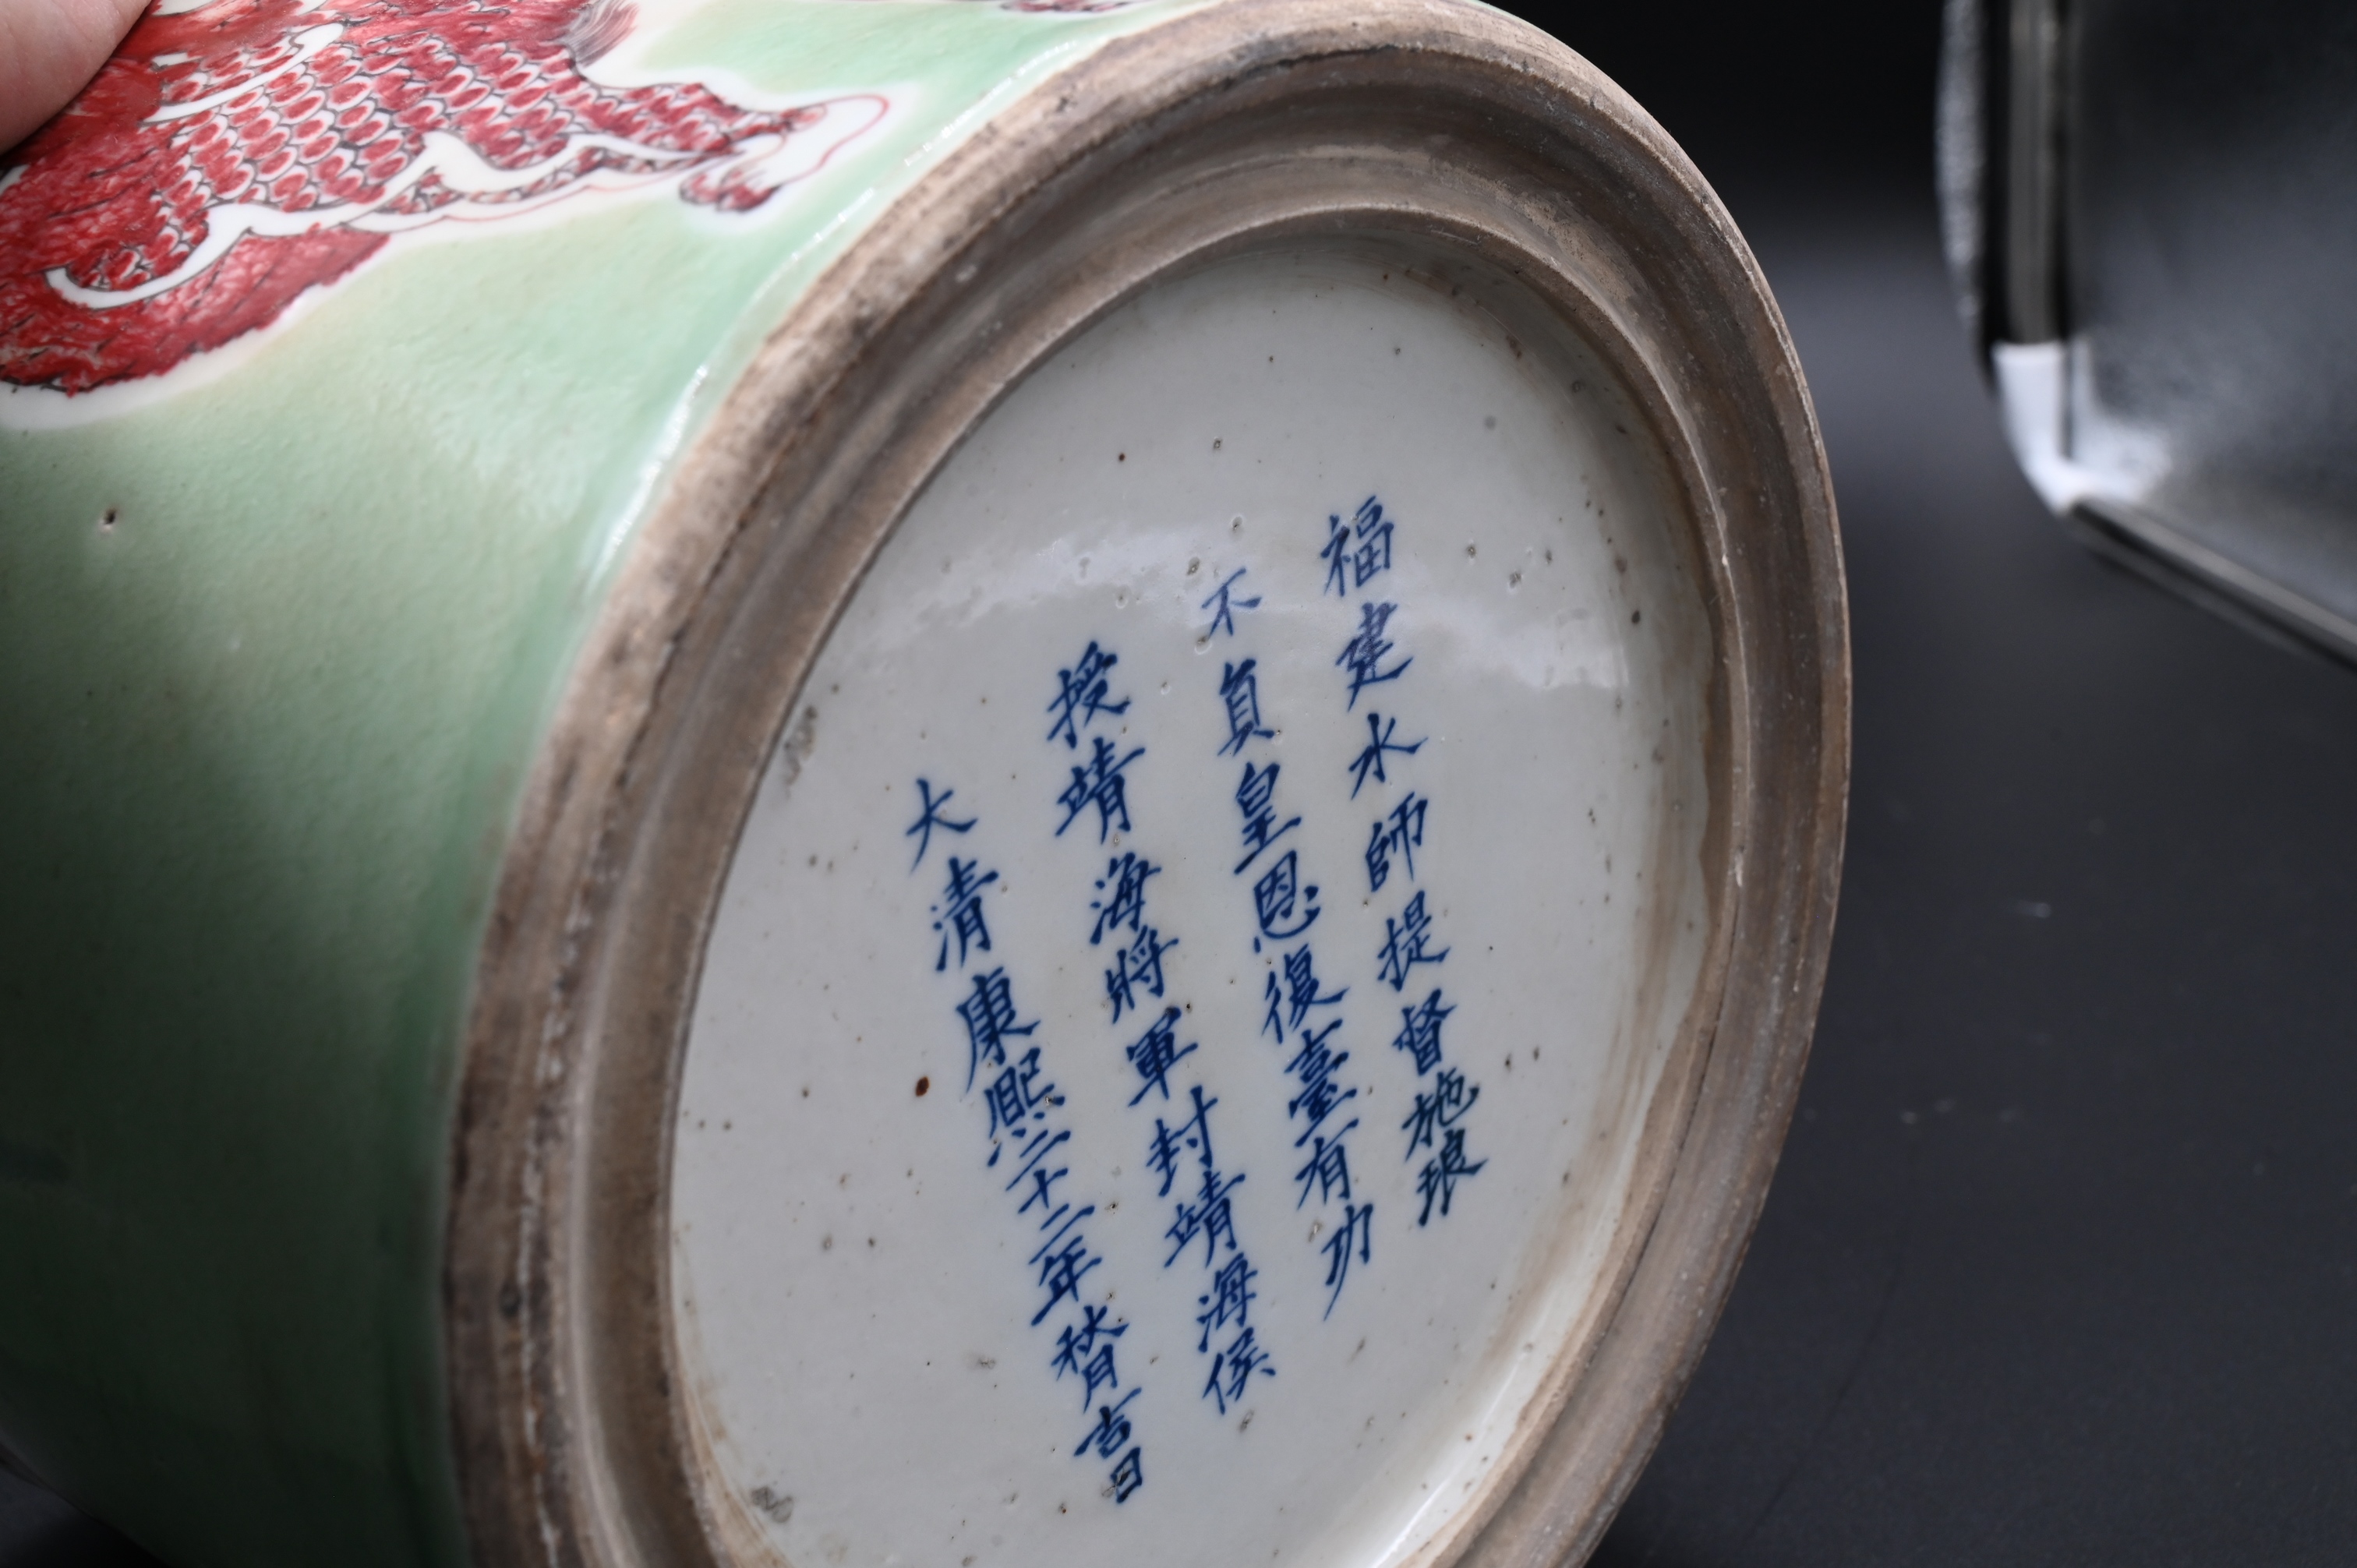 福建水師提督施琅
不負皇恩復臺有功
授靖海將軍封靖海侯
大清康熙二十二年秋月吉日